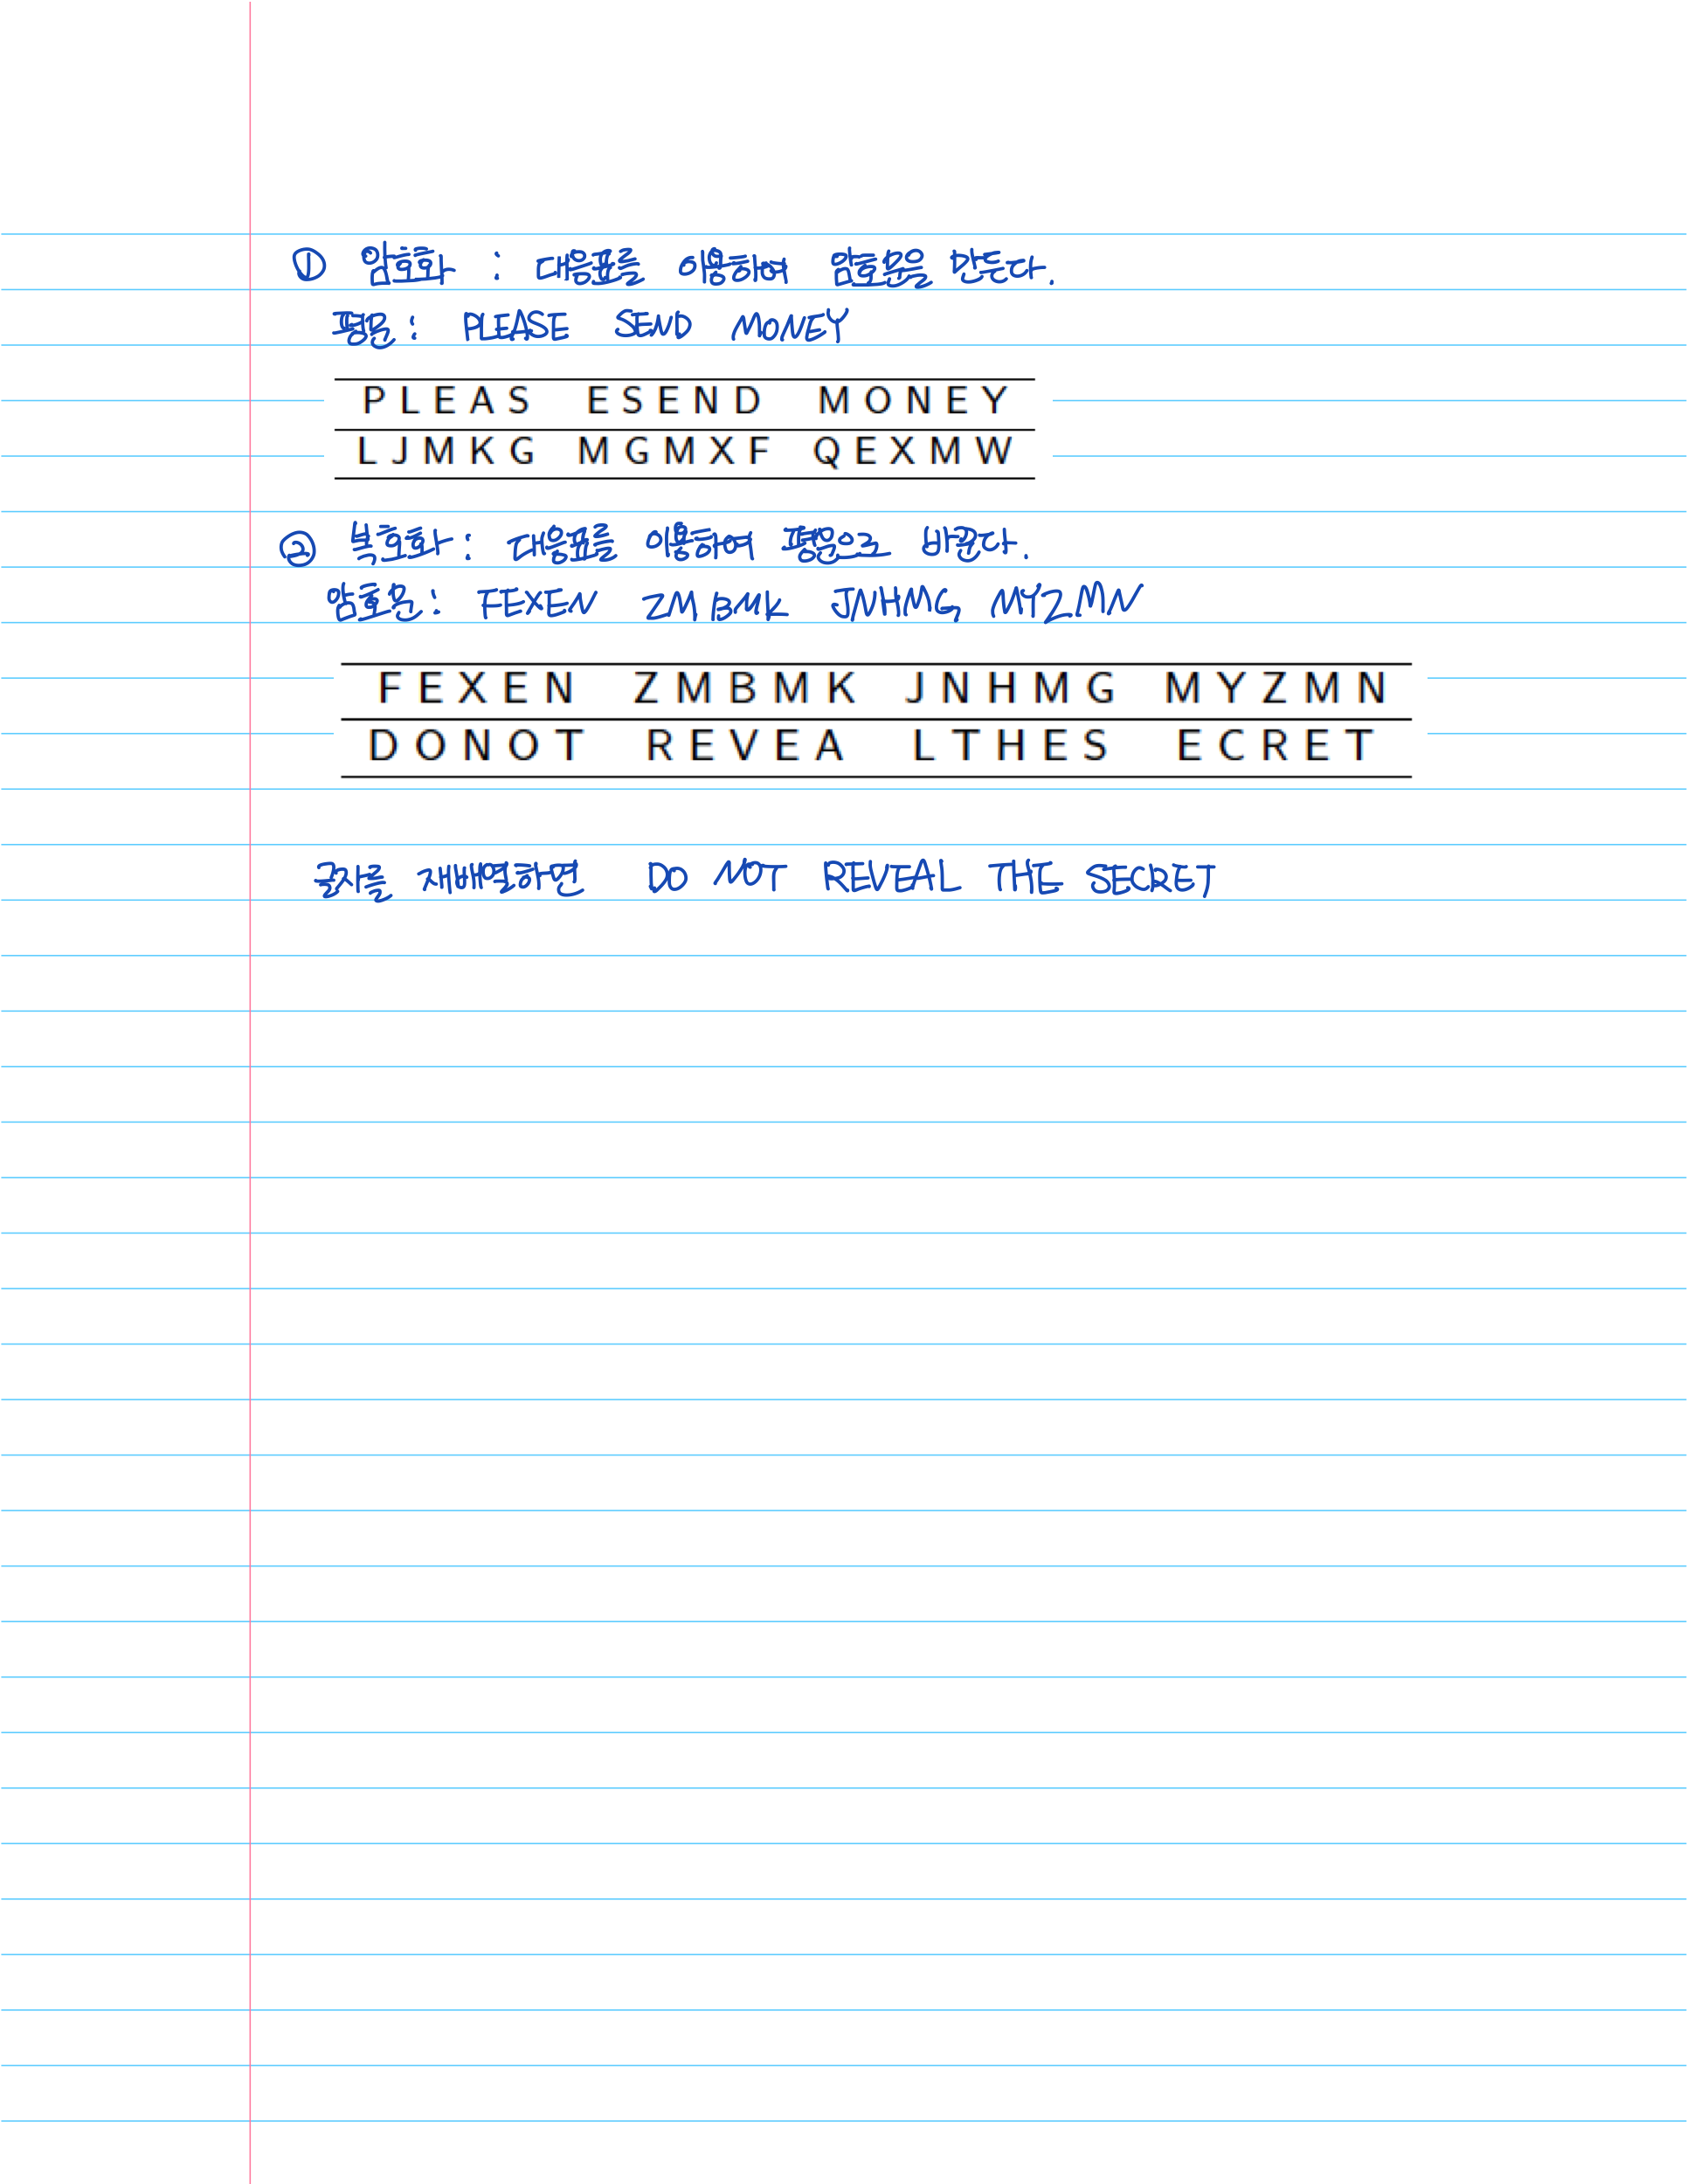 ① 암호화 : 대응표를 이용하여 암호문을 만든다.
평문 : PLEASE SEND MONEY
P L E A S E S E N D M O N E Y
L J M K G M G M X F Q E X M W
② 복호화 : 대응표를 이용하여 평문으로 바꾼다.
암호문 : FEXEN ZMBMK JNHMG MYZMN
F E X E N Z M B M K J N H M G M Y Z M N
D O N O T R E V E A L T H E S E C R E T
글자를 재배열하면 DO NOT REVEAL THE SECRET